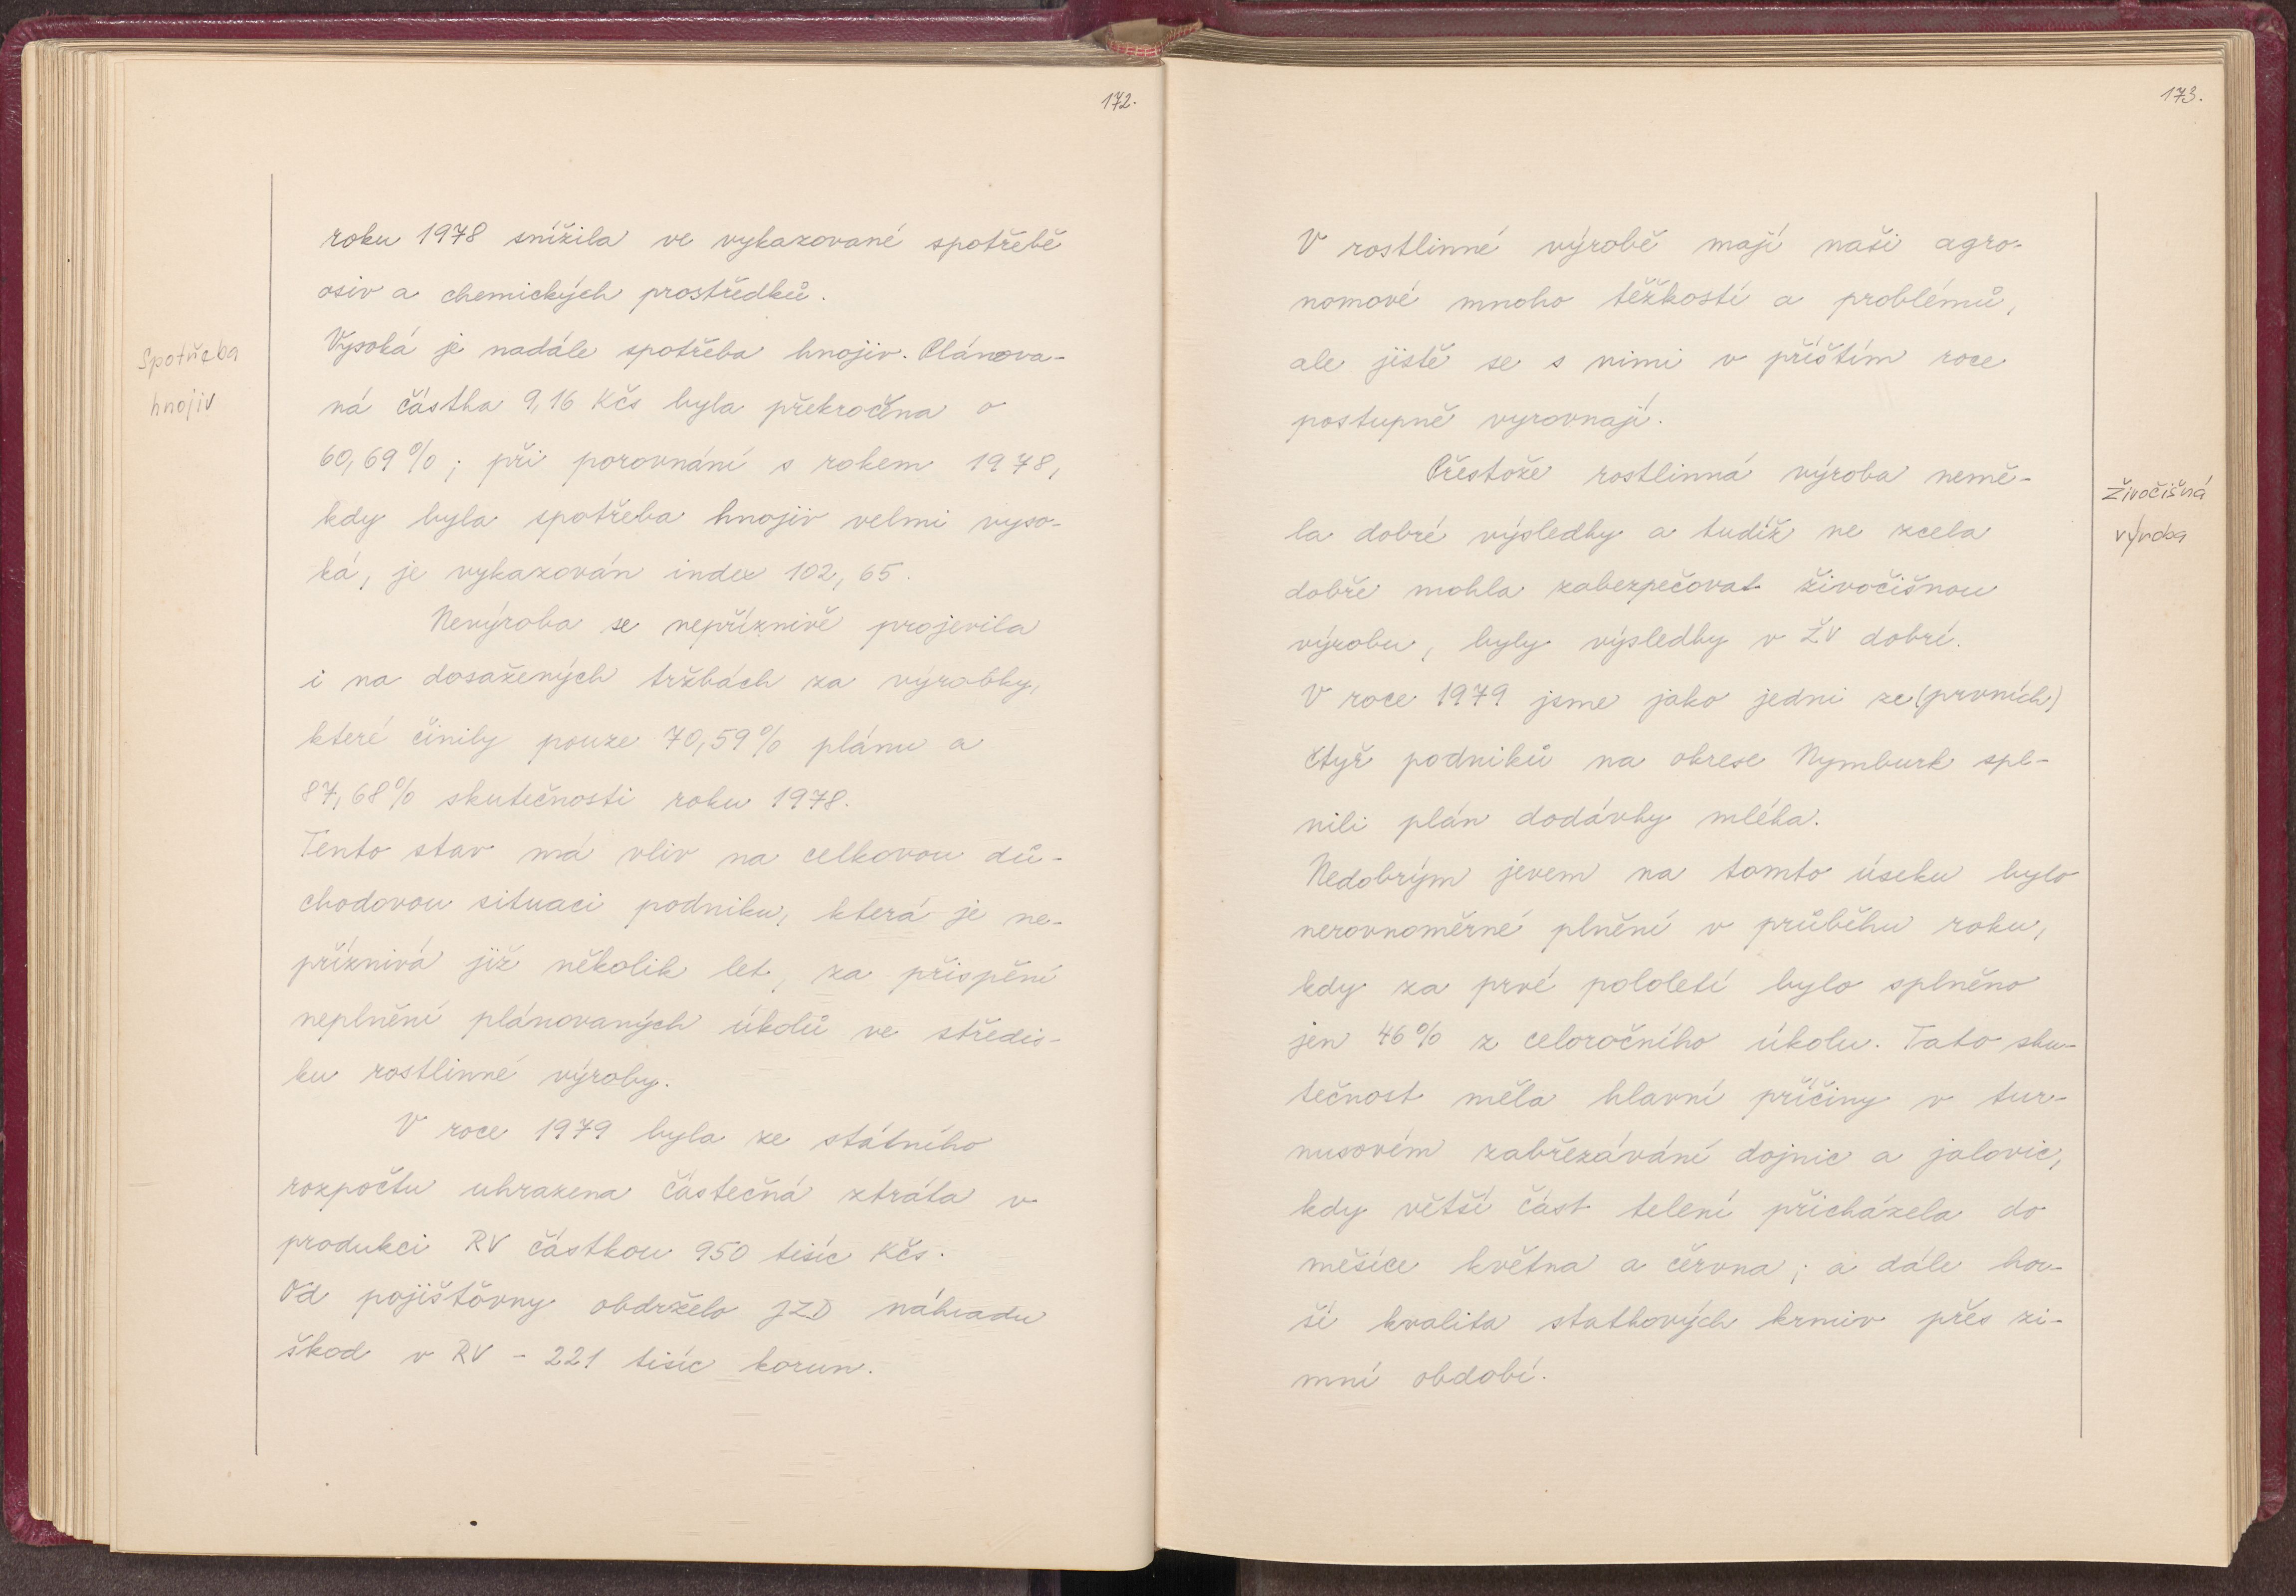 172.
roku 1978 snížila ve vykazované spotřebě
osiv a chemických prostředků.
Spotřeba
hnojiv
Vysoká je nadále spotřeba hnojiv. Plánova-
ná částka 9,16 Kčs byla překročena o
60,69 % ; při porovnání s rokem 1978,
kdy byla spotřeba hnojiv velmi vyso-
ká, je vykazován index 102,65.
Nevýroba se nepříznivě projevila
i na dosažených tržbách za výrobky,
které činily pouze 70,59 % plánu a
87,68 % skutečnosti roku 1978.
Tento stav má vliv na celkovou dů-
chodovou situaci podniku, která je ne-
příznivá již několik let, za přispění
neplnění plánovaných úkolů ve středis-
ku rostlinné výroby.
V roce 1979 byla ze státního
rozpočtu uhrazena částečná ztráta v
produkci RV částkou 950 tisíc Kčs.
Od pojišťovny obdrželo JZD náhradu
škod v RV - 221 tisíc korun.
173.
V rostlinné výrobě mají naši agro-
nomové mnoho těžkostí a problémů,
ale jistě se s nimi v příštím roce
postupně vyrovnají.
Přestože rostlinná výroba nemě-
la dobré výsledky a tudíž ne zcela
dobře mohla zabezpečovat živočišnou
výrobu, byly výsledky v ŽV dobré.
Živočišná
výroba
V roce 1979 jsme jako jedni ze (prvních)
čtyř podniků na okrese Nymburk spl-
nili plán dodávky mléka.
Nedobrým jevem na tomto úseku bylo
nerovnoměrné plnění v průběhu roku,
kdy za prvé pololetí bylo splněno
jen 46 % z celoročního úkolu. Tato sku-
tečnost měla hlavní příčiny v tur-
nusovém zabřezávání dojnic a jalovic,
kdy větší část telení přicházela do
měsíce května a června ; a dále hor-
ší kvalita statkových krmiv přes zi-
mní období.